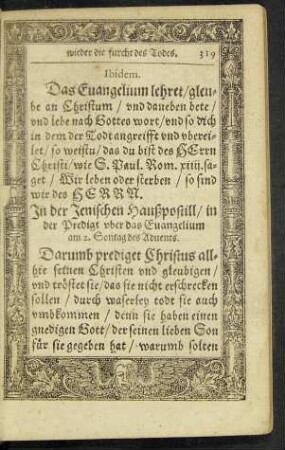 wieder die furcht des Todes. 319
Ibidem.
Das Euangelium lehret/gleu-
be an Christum / vnd daneben bete /
vnd lebe nach Gottes wort/vnd so dich
in dem der Todt angreifft vnd vberei-
let / so weistu / das du bist des HErrn
Christi/wie S. Paul. Rom. xiiij. sa-
get / Wir leben oder sterben / so sind
wir des HERRN.
In der Jenischen Haußpostill/ in
der Predigt vber das Euangelium
am 2. Sontag des Aduents.
Darumb prediget Christus all-
hie seinen Christen vnd gleubigen/
vnd tröstet sie/das sie nicht erschrecken
sollen / durch waserley todt sie auch
vmbkommen / denn sie haben einen
gnedigen Gott/der seinen lieben Son
für sie gegeben hat / warumb solten